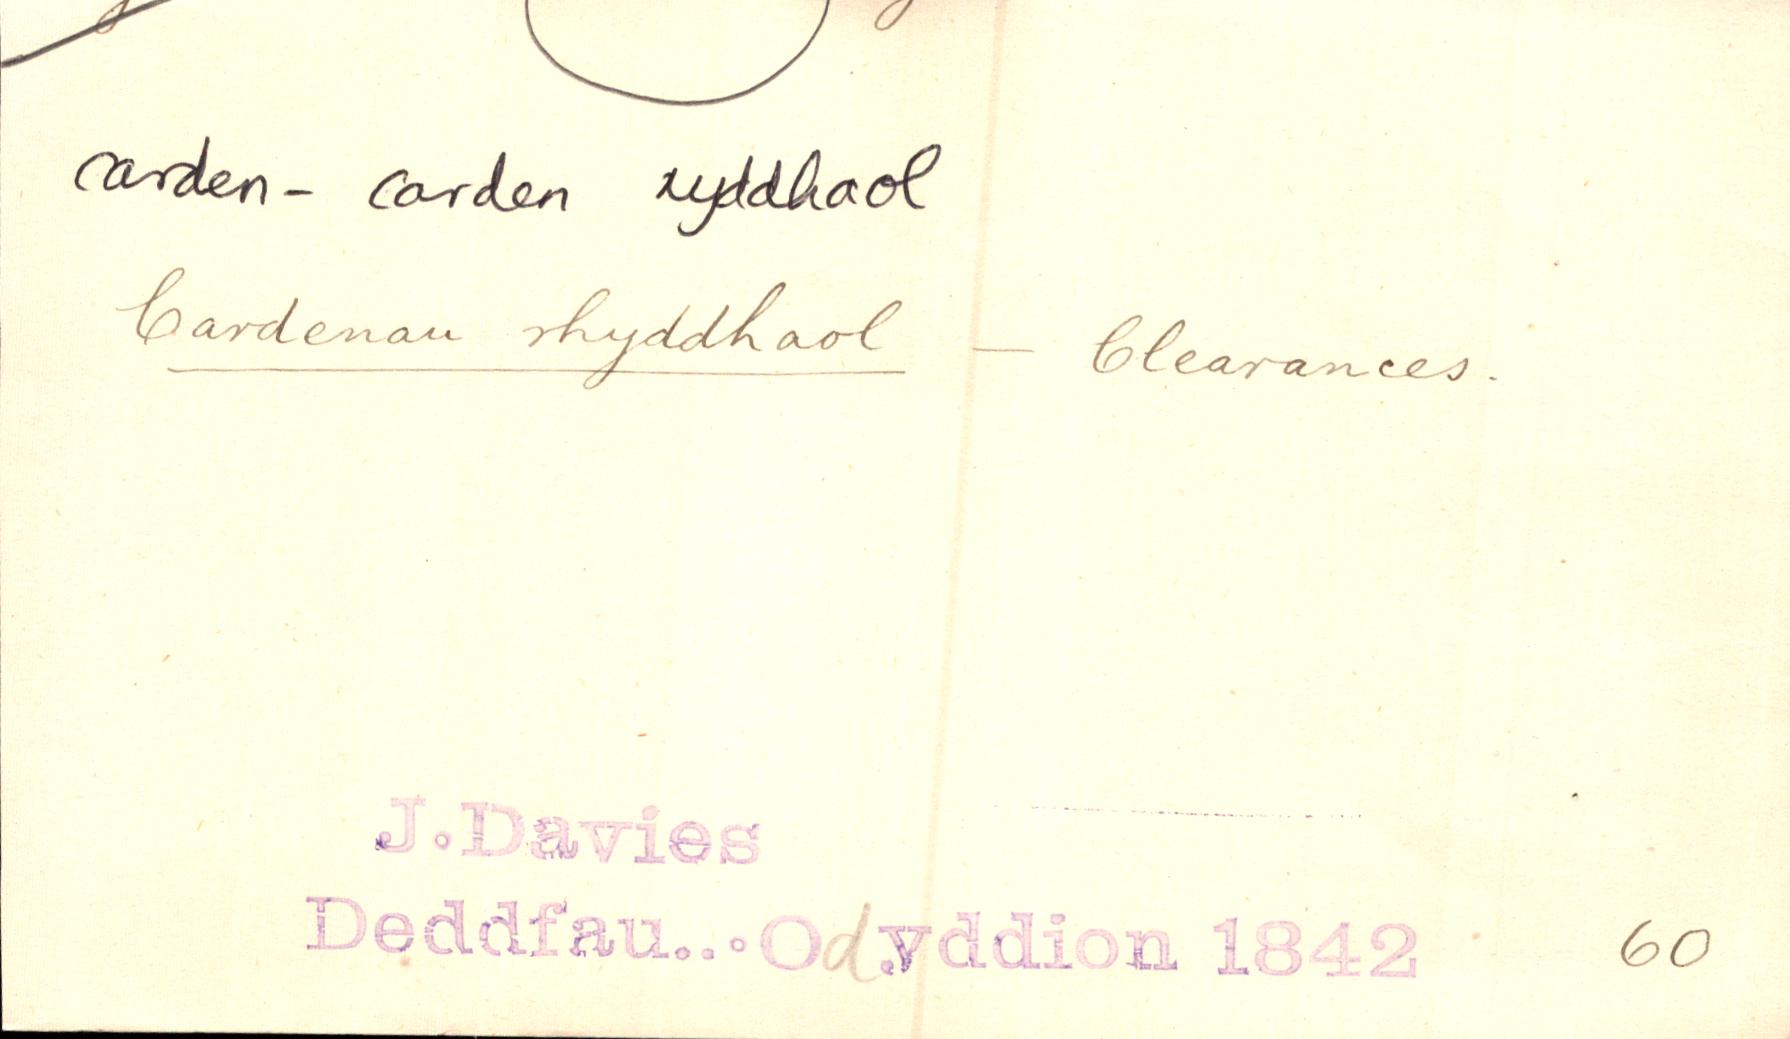 carden - carden ryddhaol
Cardenau rhyddhaol — Clearances.
J. Davies
Deddfau... Odyddion 1842 60